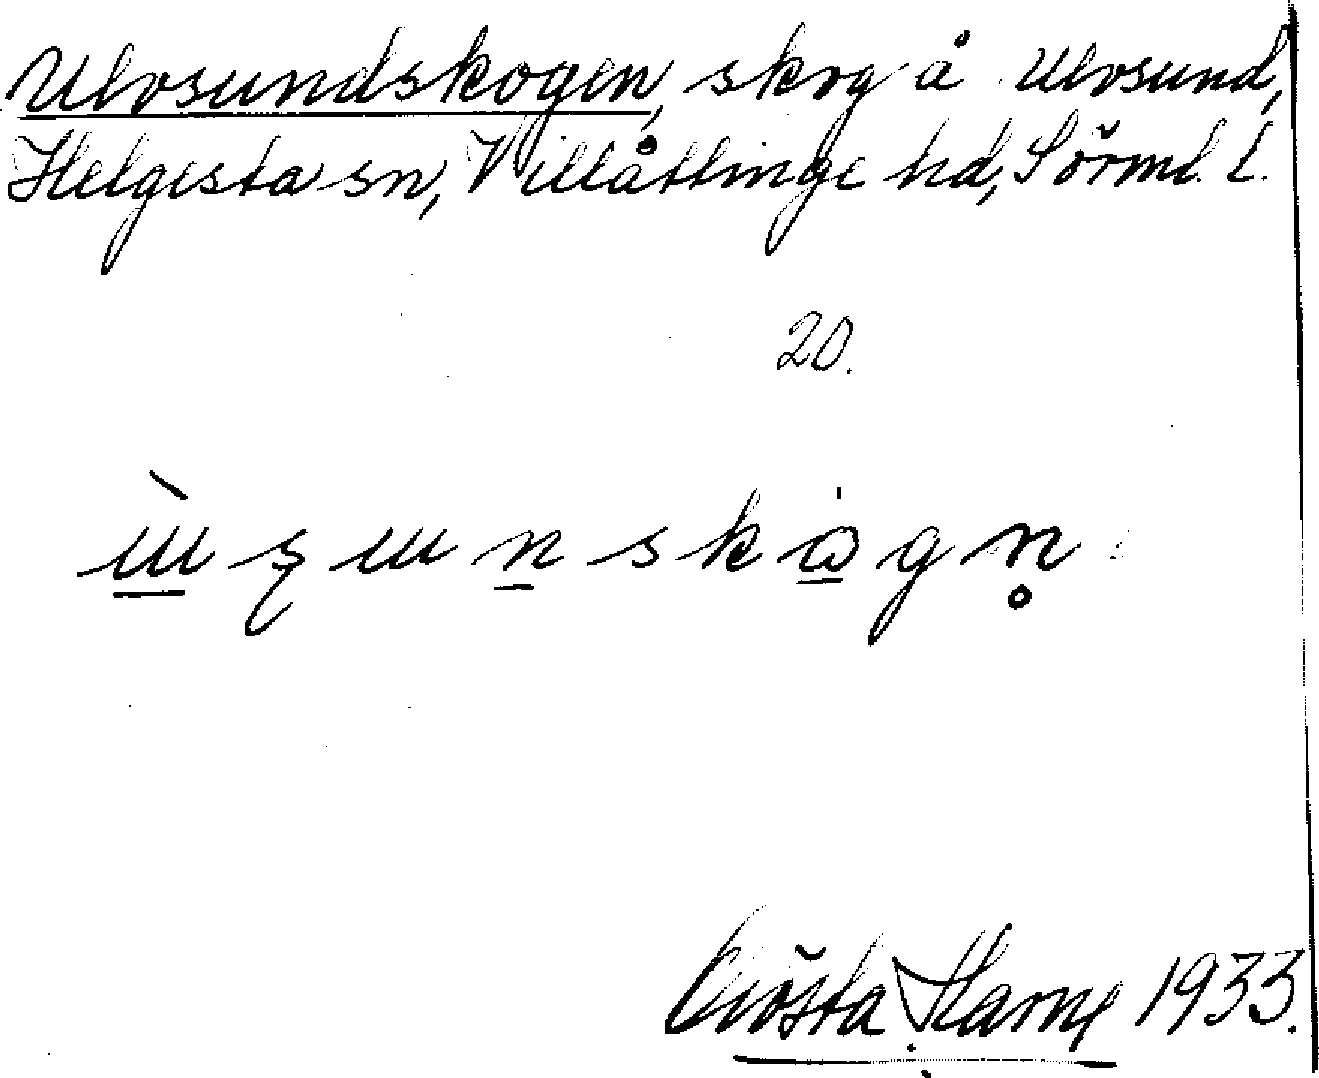 Ulvsundskogen, skog å Ulvsund,
Helgesta sn, Villåttinge hd, Sörml. l.
20.
Gösta 1933.